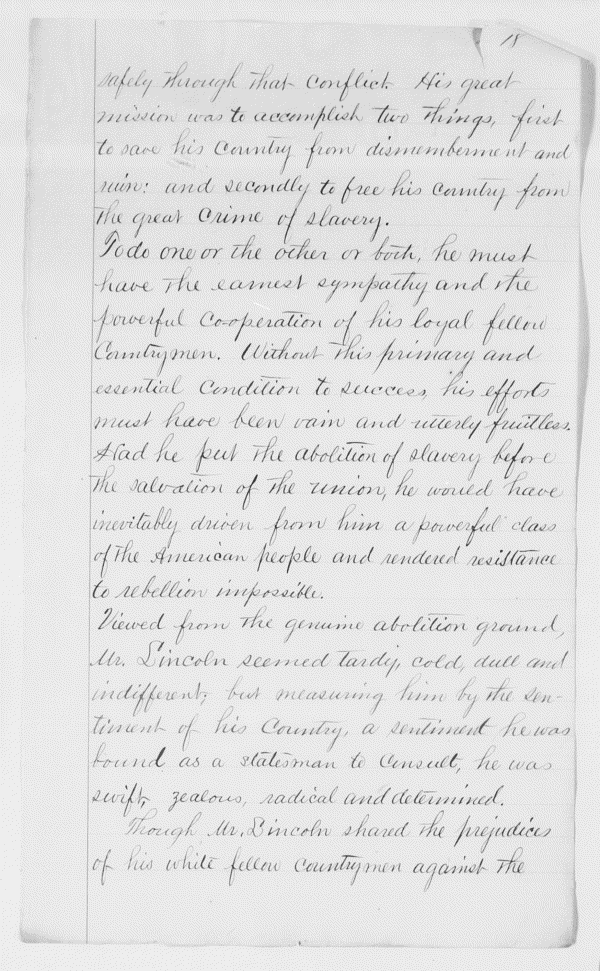 18
safely through that conflict. His great
mission was to accomplish two things, first
to save his Country from dismemberment and
ruin: and secondly to free his country from
the great crime of slavery.
To do one or the other or both, he must
have the earnest sympathy and the
powerful co-operation of his loyal fellow
Countrymen. Without this primary and
essential condition to success, his efforts
must have been vain and utterly fruitless.
Had he put the abolition of slavery before
the salvation of the union, he would have
inevitably driven from him a powerful class
of the American people and rendered resistance
to rebellion impossible.
Viewed from the genuine abolition ground,
Mr. Lincoln seemed tardy, cold, dull and
indifferent; but measuring him by the sen-
timent of his Country, a sentiment he was
bound as a statesman to consult, he was
swift, zealous, radical and determined.
Though Mr. Lincoln shared the prejudices
of his white fellow countrymen against the